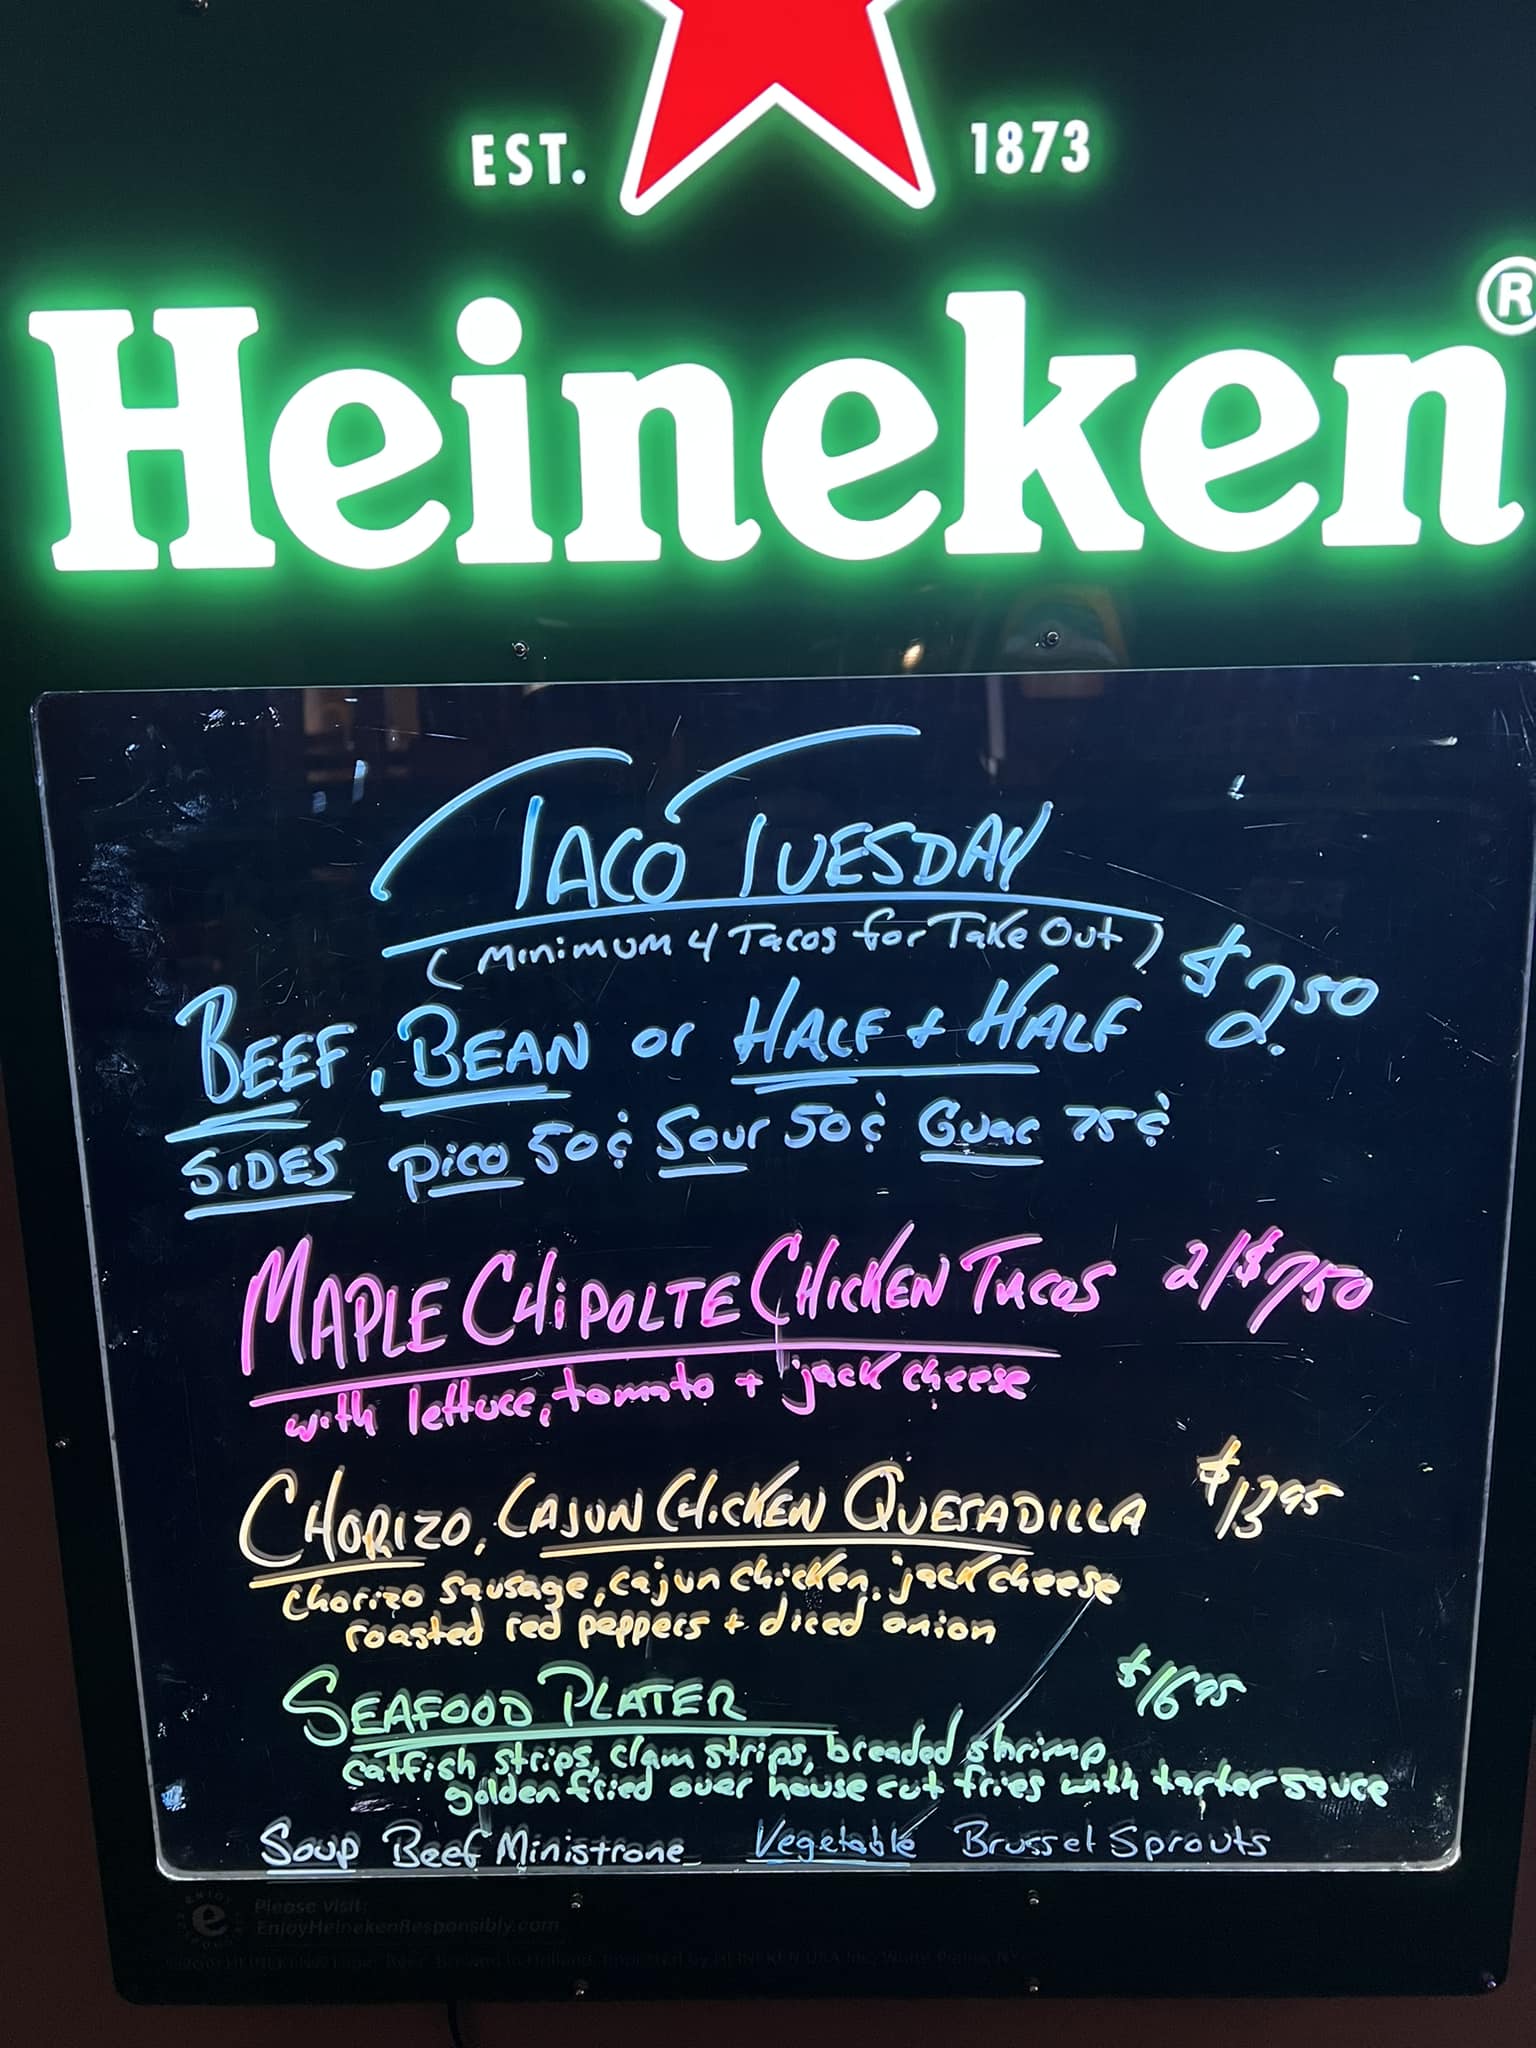 EST. 1873
Heineken®
TACO TUESDAY
(Minimum 4 Tacos for Take Out)
BEEF, BEAN or HALF + HALF $2.50
SIDES Pico 50¢ Sour 50¢ Guac 75¢
MAPLE CHIPOLTE CHICKEN TACOS 2/$7.50
with lettuce, tomato + jack cheese
CHORIZO, CAJUN CHICKEN QUESADILLA $13.95
chorizo sausage, cajun chicken, jack cheese
roasted red peppers + diced onion
SEAFOOD PLATER $16.95
catfish strips, clam strips, breaded shrimp
golden fried over house cut fries with tarter sauce
Soup Beef Ministrone Vegetable Brussel Sprouts
Please visit:
EnjoyHeinekenResponsibly.com